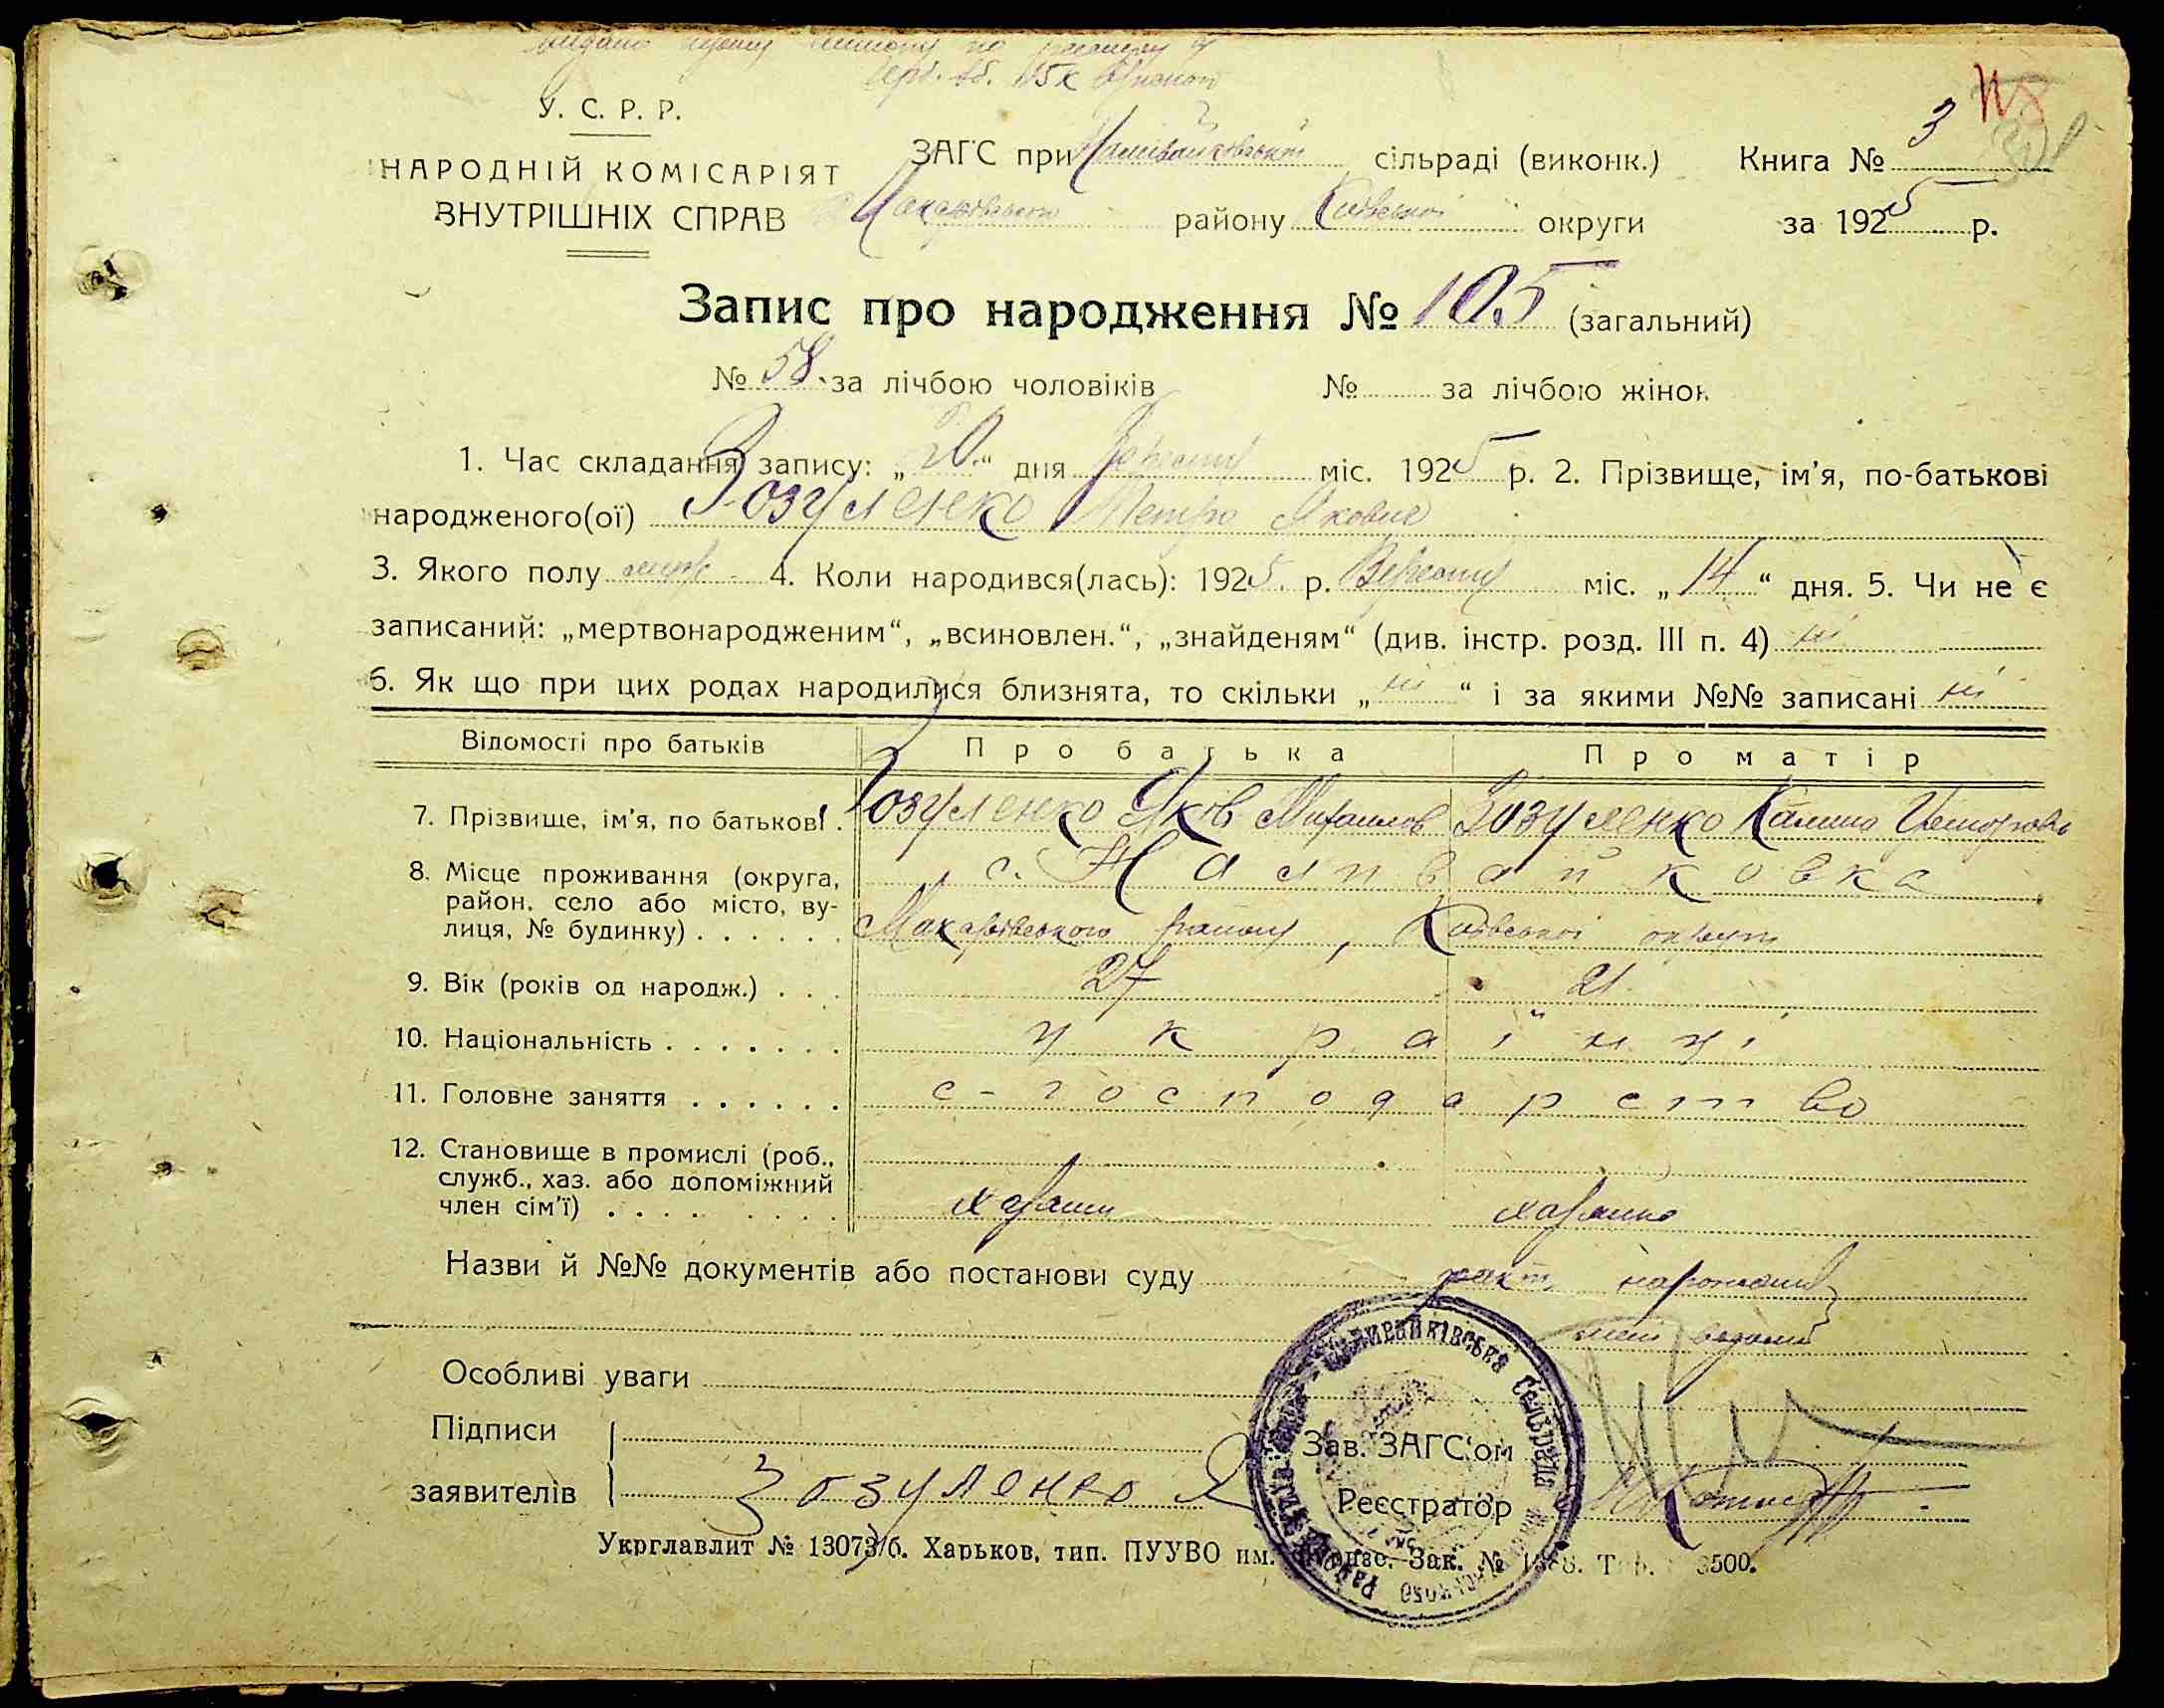 У. С. Р. Р.
НАРОДНІЙ КОМІСАРІЯТ
ВНУТРІШНІХ СПРАВ
ЗАГС при сільраді (виконк.)
Макарівського району Київської округи
Книга № 3
за 1925 р.
Запис про народження № 105 (загальний)
№ 58 за лічбою чоловіків № за лічбою жінок
1. Час складання запису: „20“ дня Вересня міс. 1925 р. 2. Прізвище, ім'я, по-батькові
народженого(ої) Зозуленко Петро Якович
3. Якого полу 4. Коли народився(лась): 1925 р. Вересня міс. „14“ дня. 5. Чи не є
записаний: „мертвонародженим“, „всиновлен.“, „знайденям“ (див. інстр. розд. III п. 4) ні
6. Як що при цих родах народилися близнята, то скільки „ні“ і за якими №№ записані ні
Відомості про батьків Про батька Про матір
7. Прізвище, ім'я, по батькові. Зозуленко Яків Михайлов Зозуленко
8. Місце проживання (округа,
район, село або місто, ву-
лиця, № будинку) . . . . . .
с. Наливайковка
Макарівського району, Київської округи
9. Вік (років од народж.) . . . 27 21
10. Національність . . . . . . . українці
11. Головне заняття . . . . . . с-господарство
12. Становище в промислі (роб.,
служб., хаз. або допоміжний
член сім'ї) . . . . . . . .
Назви й №№ документів або постанови суду
Особливі уваги
Підписи
заявителів Зозуленко Я
Зав. ЗАГС'ом
Реєстратор
Укрглавлит № 13073/б. Харьков, тип. ПУУВО им. Фрунзе. Зак. №